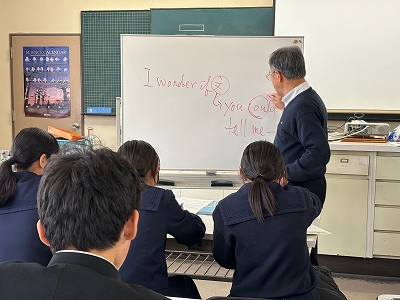 SCIENCE CALENDAR
I wonder if
you could
tell me